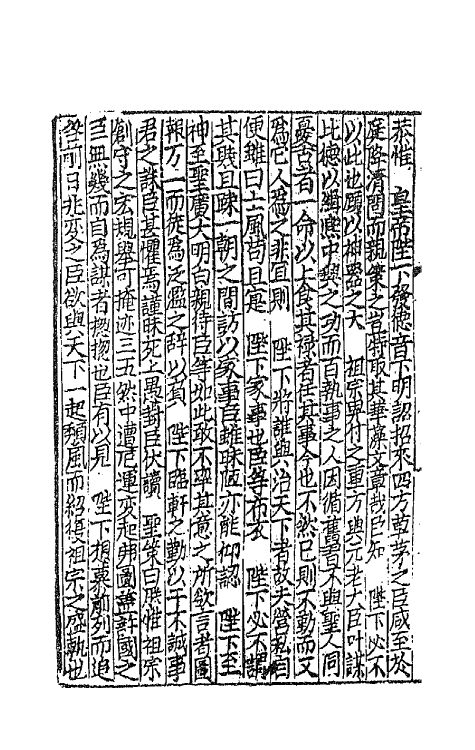 恭惟　皇帝陛下發德音下明詔招來四方草茅之臣咸至於
庭除清閒而親策之豈特取其華靡文章哉臣知　陛下必不
以此也願以神器之大　祖宗畀付之重方與元老大臣叶謀
比德以緝熙中興之功而百執事之人因循舊習不與聖人同
憂古者一命以上食其祿者居其事今也不然己則不勤而又
爲它人爲之非宜則　陛下將誰與共治天下者故夫營私自
便雖曰士風苟且寔　陛下家事也臣等布衣　陛下必不謂
其賤且疎一朝之間訪以家事臣雖昧恆亦能仰認　陛下至
神至聖廣大明白親待臣等如此敢不率其意之所欲言者圖
報万一而徒爲泛濫之辭以負　陛下臨軒之勤以干不誠事
君之誅臣甚懼焉謹昧死上愚對臣伏讀　聖策曰朕惟祖宗
創守之宏規舉可掩迹三五然中遭厄運變起弗圖諭許國之
臣無幾而自爲謀者揔揔也臣有以見　陛下想慕前列而追
咎前日非夫之臣欲與天下一起頹風而紹復祖宗之盛執也